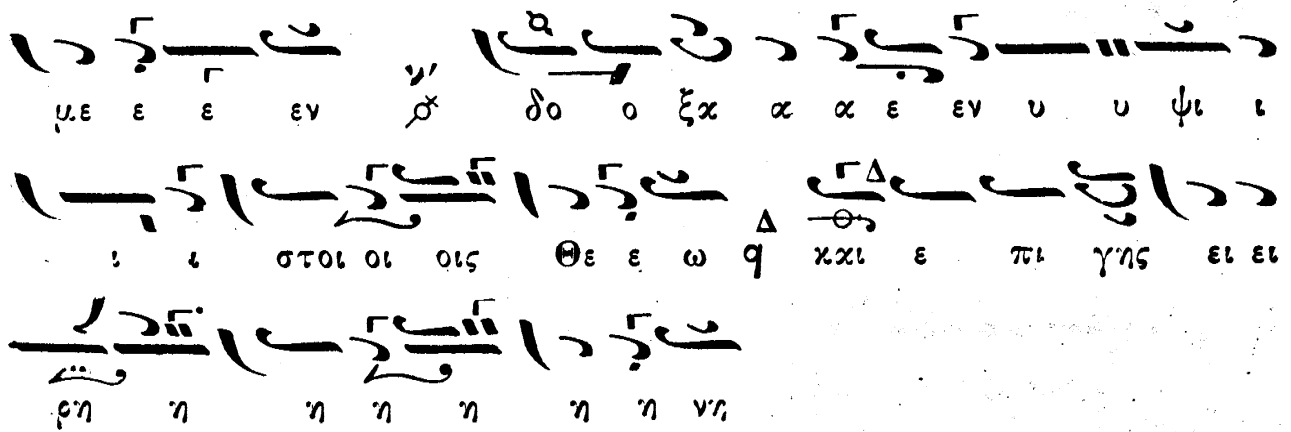 με ε ε εν δο ο ξα α α ε εν υ υ ψι ι
ι ι στοι οι οις Θε ε ω Δ και ε πι γης ει ει
ρη η η η η η η νη